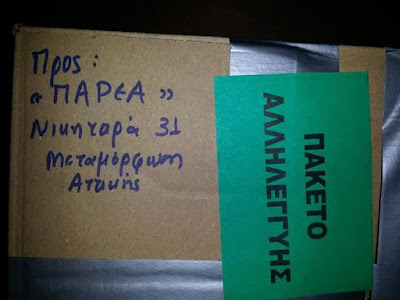 Προς:
« ΠΑΡΕΑ »
Νικηταρά 31
Μεταμόρφωση
Αττικής
ΠΑΚΕΤΟ
ΑΛΛΗΛΕΓΓΥΗΣ